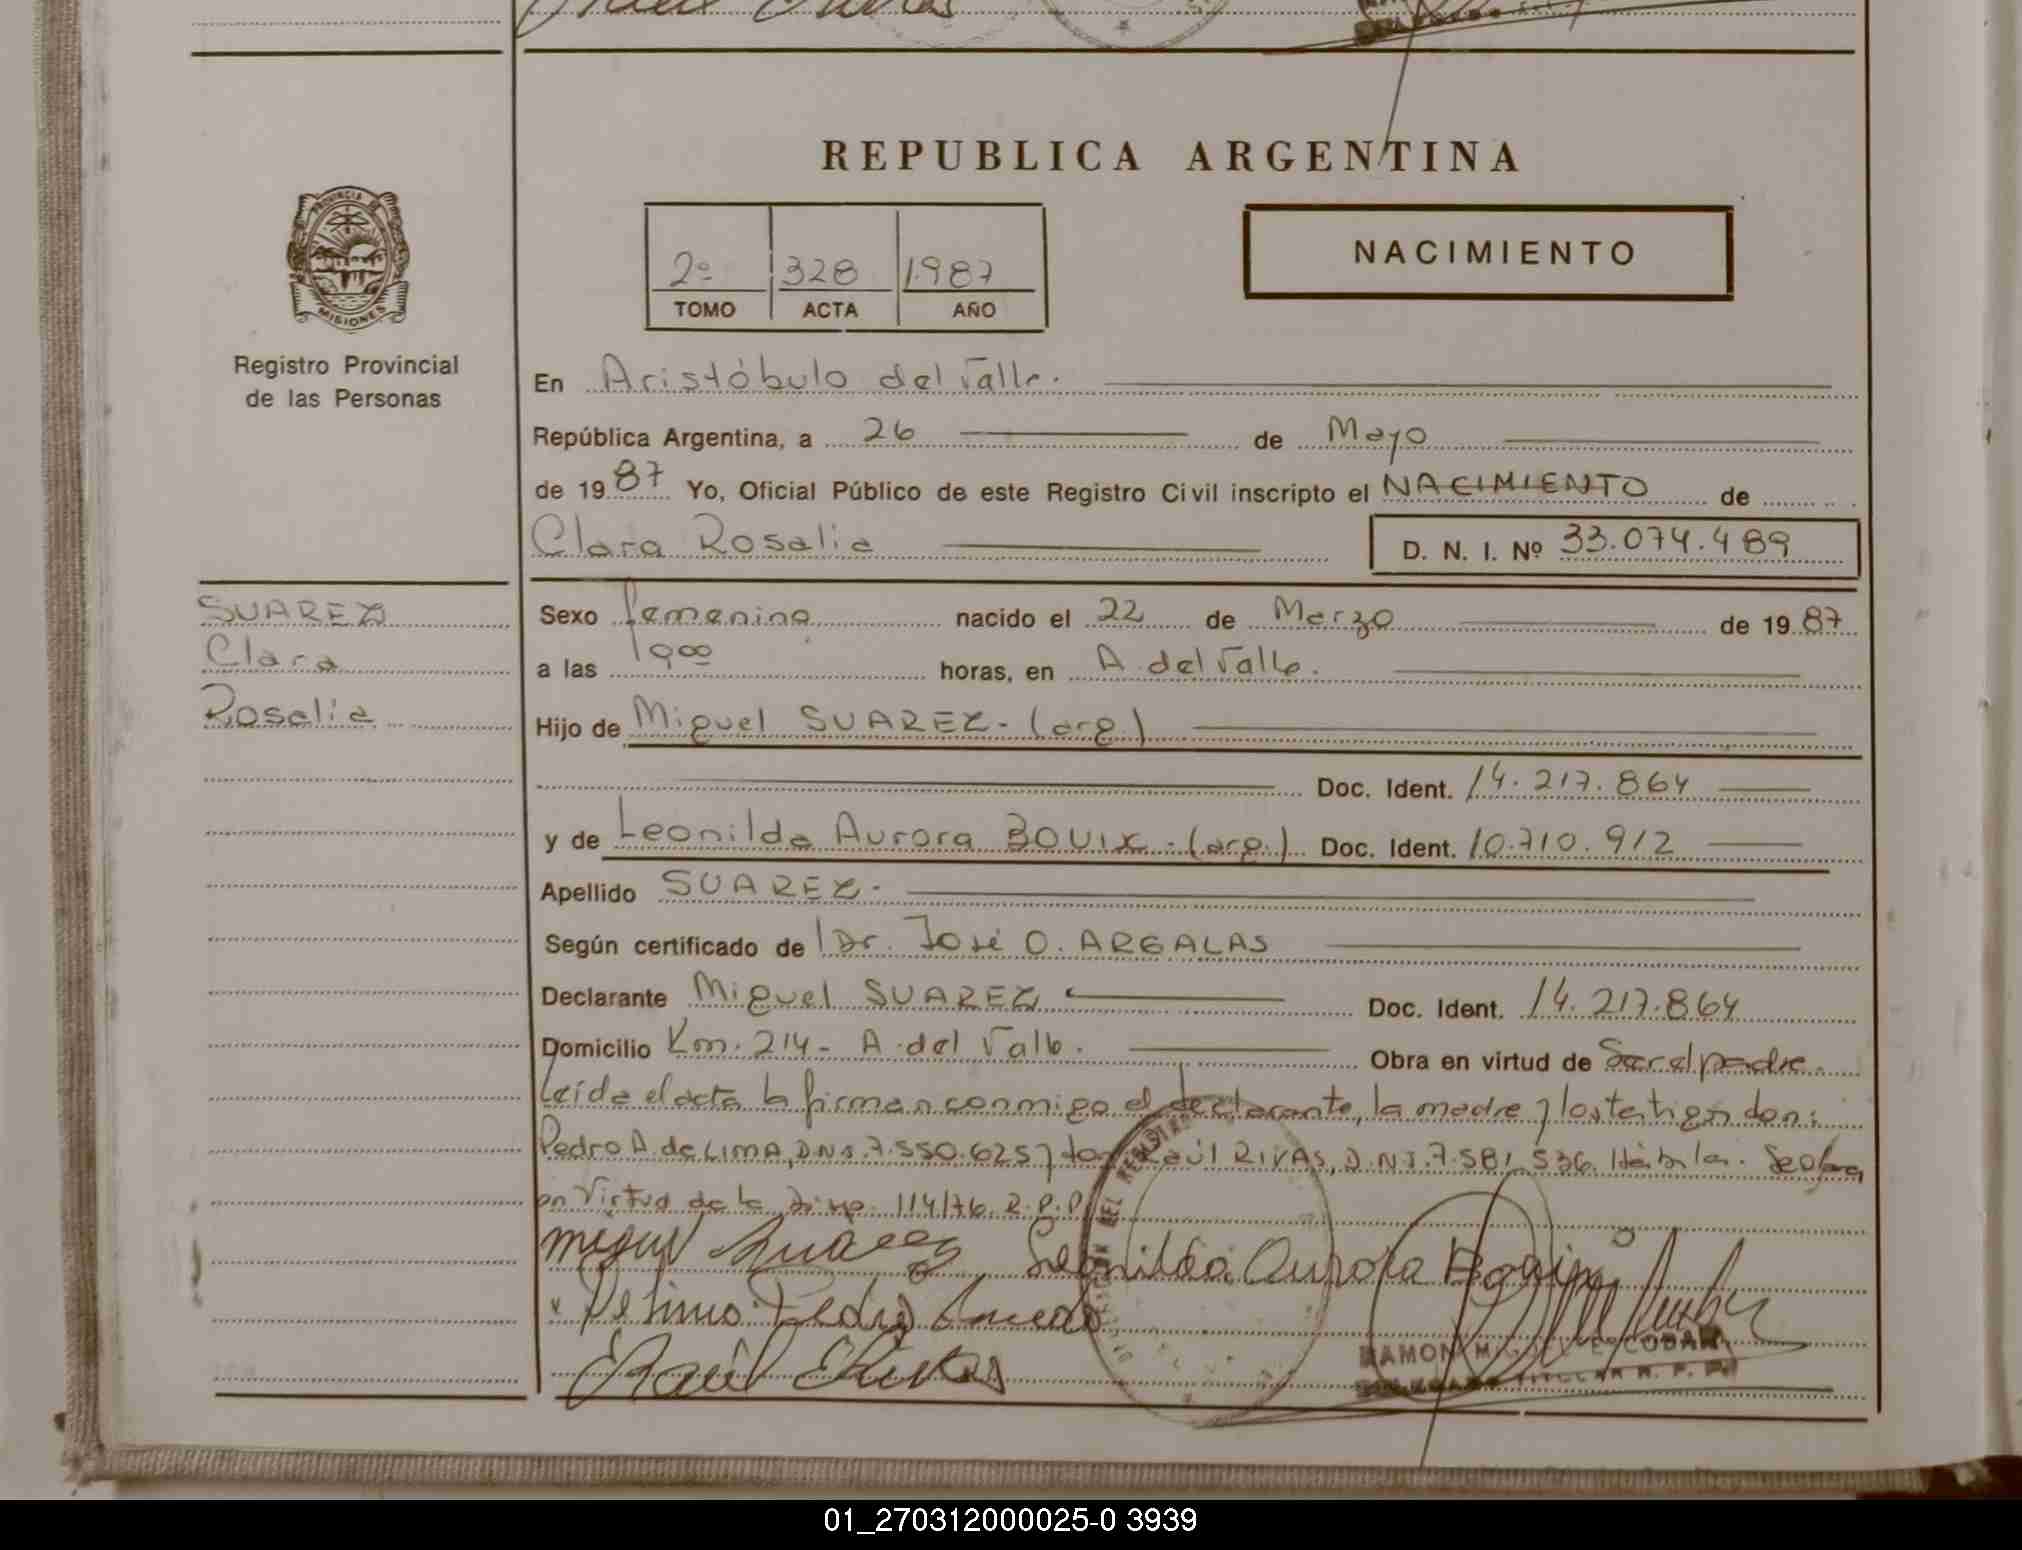 REPUBLICA ARGENTINA
PROVINCIA DE
MISIONES
Registro Provincial
de las Personas
2º 328 1.987
TOMO ACTA AÑO
NACIMIENTO
En Aristóbulo del Valle.
República Argentina, a 26 de Mayo
de 1987 Yo, Oficial Público de este Registro Civil inscripto el NACIMIENTO de
Clara Rosalia D. N. I. Nº 33.074.489
SUAREZ
Clara
Rosalia
Sexo femenino nacido el 22 de Marzo de 1987
a las 19 00 horas, en A. del Valle.
Hijo de Miguel SUAREZ - (arg.)
Doc. Ident. 14.217.864
y de Leonilda Aurora BOUIX - (arg.) Doc. Ident. 10.710.912
Apellido SUAREZ.
Según certificado de Dr. José O. ARGALAS
Declarante Miguel SUAREZ Doc. Ident. 14.217.864
Domicilio Km. 214 - A. del Valle. Obra en virtud de Ser el padre.
Leída el acta la firman conmigo el declarante, la madre y los testigos don:
Pedro A. de LIMA, D.N.I. 7.550.625 y don Raúl RIVAS, D.N.I. 7.581.536. Hábiles. Se obra
en virtud de la Disp. 114/76. R.P.P.
Miguel Suarez Leonilda Aurora
De Lima Pedro
Raúl Rivas
RAMON MIGUEL ESCOBAR
01_270312000025-0 3939